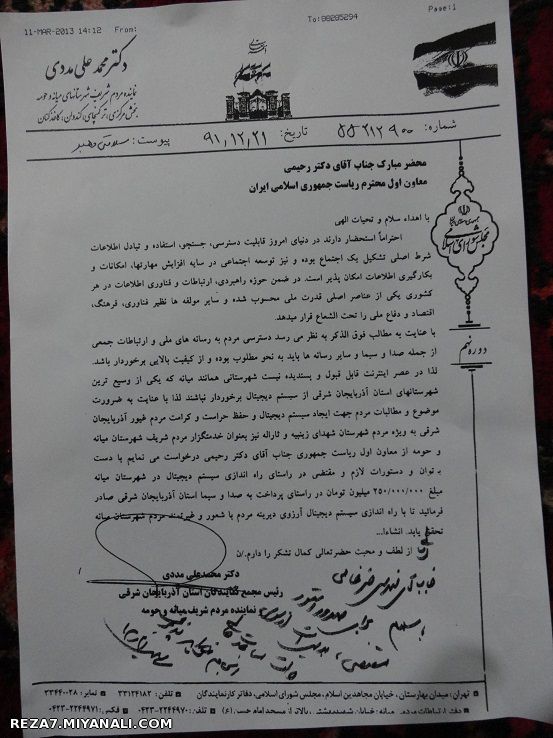 11-MAR-2013 14:12 From: To:88285294 Page:1
دکتر محمد علی مددی
نماینده مردم شریف شهرستانهای میانه و حومه
بخش مرکزی، ترکمنچای، کندوان، کاغذکنان
شماره: ۵۵۲۱۲۹۰۰ تاریخ: ۹۱,۱۲,۲۱ پیوست:
جمهوری اسلامی ایران
مجلس شورای اسلامی
دوره نهم
محضر مبارک جناب آقای دکتر رحیمی
معاون اول محترم ریاست جمهوری اسلامی ایران
با اهداء سلام و تحیات الهی
احتراماً استحضار دارند در دنیای امروز قابلیت دسترسی، جستجو، استفاده و تبادل اطلاعات
شرط اصلی تشکیل یک اجتماع بوده و نیز توسعه اجتماعی در سایه افزایش مهارتها، امکانات و
بکارگیری اطلاعات امکان پذیر است. در ضمن حوزه راهبردی، ارتباطات و فناوری اطلاعات در هر
کشوری یکی از عناصر اصلی قدرت ملی محسوب شده و سایر مولفه ها نظیر فناوری، فرهنگ،
اقتصاد و دفاع ملی را تحت الشعاع قرار میدهد.
با عنایت به مطالب فوق الذکر به نظر می رسد دسترسی مردم به رسانه های ملی و ارتباطات جمعی
از جمله صدا و سیما و سایر رسانه ها باید به نحو مطلوب بوده و از کیفیت بالایی برخوردار باشد.
لذا در عصر اینترنت قابل قبول و پسندیده نیست شهرستانی همانند میانه که یکی از وسیع ترین
شهرستانهای استان آذربایجان شرقی از سیستم دیجیتال برخوردار نباشند لذا با عنایت به ضرورت
موضوع و مطالبات مردم جهت ایجاد سیستم دیجیتال و حفظ حراست و کرامت مردم غیور آذربایجان
شرقی به ویژه مردم شهرستان شهدای زینبیه و ثارالله نیز بعنوان خدمتگزار مردم شریف شهرستان میانه
و حومه از معاون اول ریاست جمهوری جناب آقای دکتر رحیمی درخواست می نمایم با دست
به توان و دستورات لازم و مقتضی در راستای راه اندازی سیستم دیجیتال در شهرستان میانه
مبلغ ۲۵۰/۰۰۰/۰۰۰ میلیون تومان در راستای پرداخت به صدا و سیما استان آذربایجان شرقی صادر
فرمائید تا با راه اندازی سیستم دیجیتال آرزوی دیرینه مردم با شعور و غیرتمند مردم شهرستان میانه
تحقق یابد. انشاءا...
از لطف و محبت حضرتعالی کمال تشکر را دارم./ن
دکتر محمدعلی مددی
رئیس مجمع نمایندگان استان آذربایجان شرقی
و نماینده مردم شریف میانه و حومه
تهران: میدان بهارستان، خیابان مجاهدین اسلام، مجلس شورای اسلامی، دفاتر کارنمایندگان تلفن: ۳۳۱۲۴۱۸۲ نمابر: ۳۳۴۴۰۰۲۸
دفتر ارتباطات مردمی میانه: خیابان شهید بهشتی، بالاتر از مسجد امام حسن (ع) تلفن: ۲۲۴۴۹۷۰-۰۴۲۳ فکس: ۲۲۴۴۹۷۱-۰۴۲۳
REZA7.MIYANALI.COM